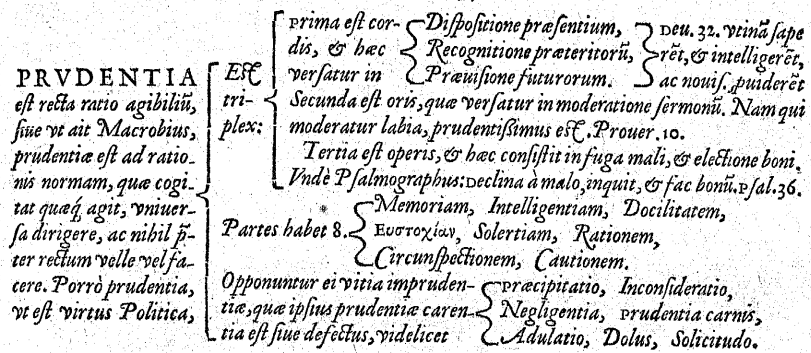 PRVDENTIA
eſt recta ratio agibiliũ,
ſiue vt ait Macrobius,
prudentiæ eſt ad ratio-
nis normam, quæ cogi-
tat quæq́; agit, vniuer-
ſa dirigere, ac nihil p̃-
ter rectum velle vel fa-
cere. Porrò prudentia,
vt eſt virtus Politica,
Eſt
tri-
plex:
Prima eſt cor-
dis, & hæc
verſatur in
Diſpoſitione præſentium,
Recognitione præteritorũ,
Præuiſione futurorum.
Deu. 32. vtinã ſape
rẽt, & intelligerẽt,
ac nouiſ., puiderẽt
Secunda eſt oris, quæ verſatur in moderatione ſermonũ. Nam qui
moderatur labia, prudentiſſimus eſt. Prouer. 10.
Tertia eſt operis, & hæc conſiſtit in fuga mali, & electione boni.
Vndè Pſalmographus: Declina à malo, inquit, & fac bonũ. Pſal. 36.
Partes habet 8.
Memoriam, Intelligentiam, Docilitatem,
Ευστοχίαν, Solertiam, Rationem,
Circunſpectionem, Cautionem.
Opponuntur ei vitia impruden-
tiæ, quæ ipſius prudentiæ caren-
tia eſt ſiue defectus, videlicet
Præcipitatio, Inconſideratio,
Negligentia, Prudentia carnis,
Adulatio, Dolus, Solicitudo.